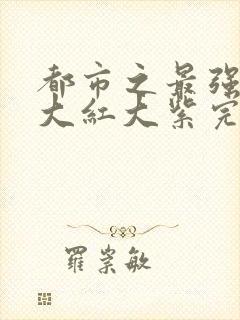 都市之最强
大红大紫完
罗崇敏